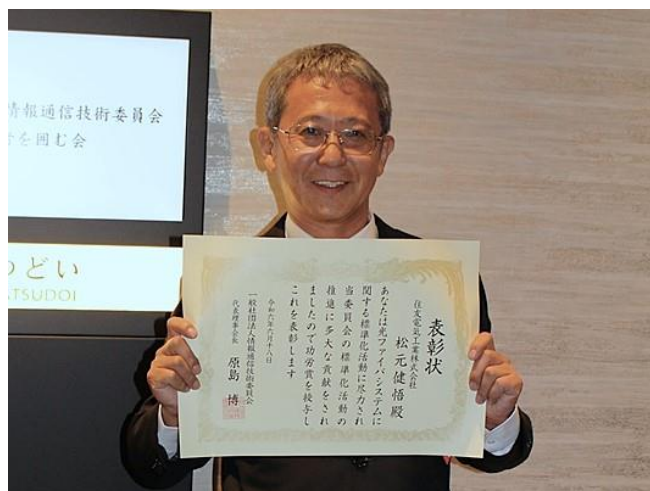 情報通信技術委員会
を囲む会
つどい
ATSUDOI
表彰状
住友電気工業株式会社
松元健悟殿
あなたは光ファイバシステムに
関する標準化活動に尽力され
当委員会の標準化活動の
推進に多大な貢献をされ
ましたので功労賞を授与し
これを表彰します
令和六年六月十八日
一般社団法人情報通信技術委員会
代表理事会長 原島博